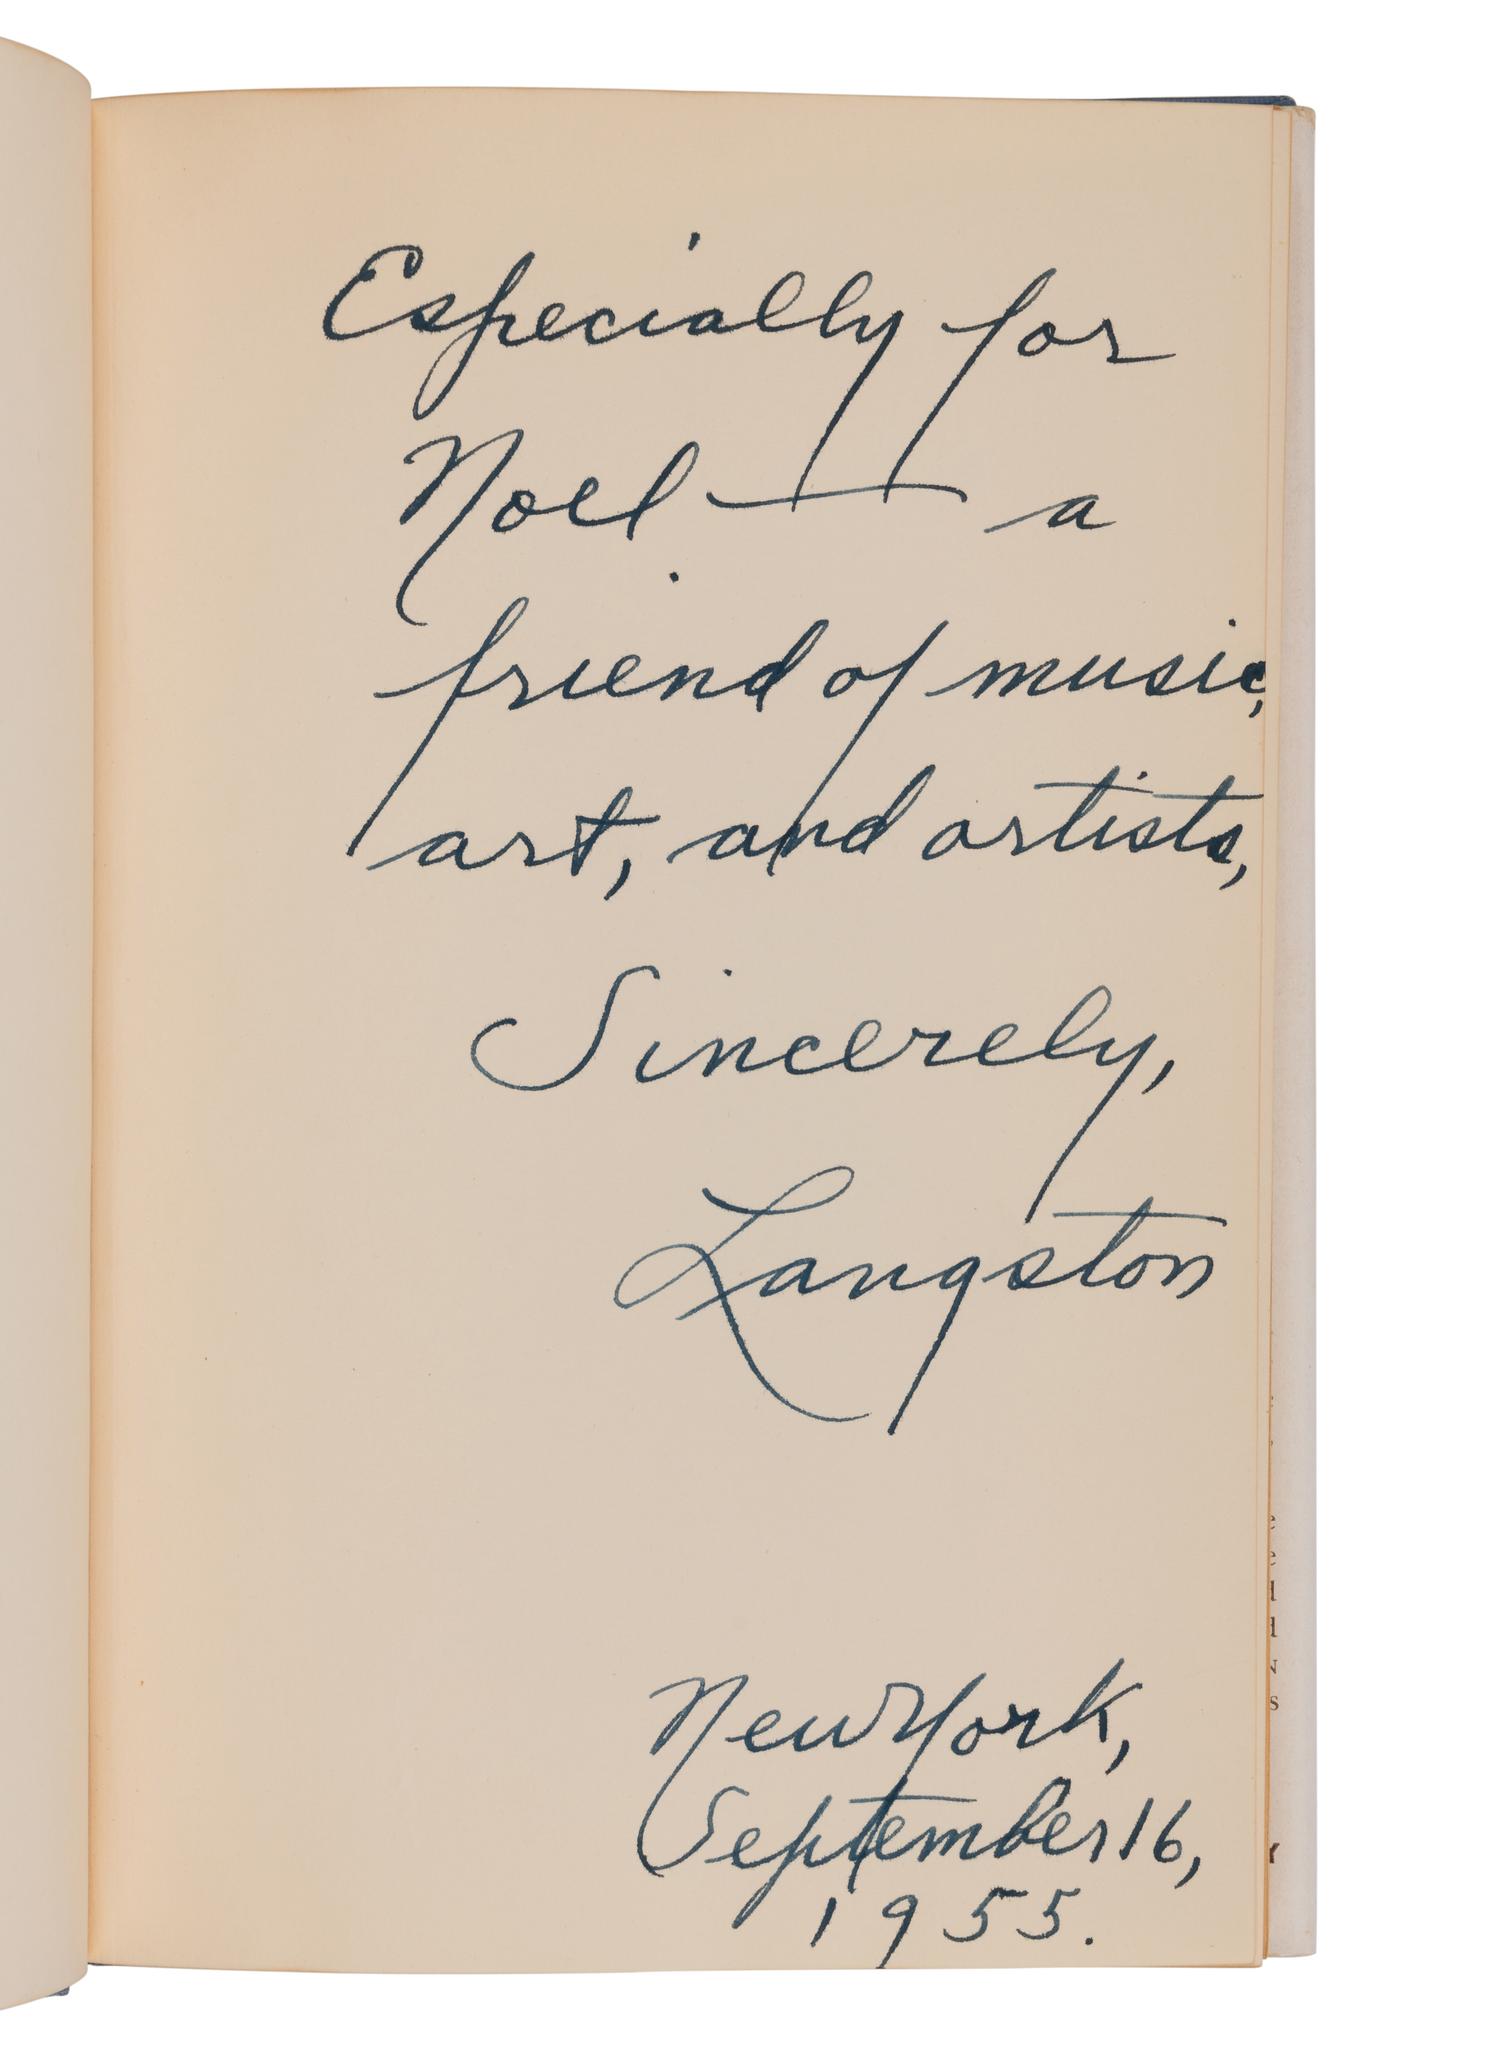 Especially for
Noel — a
friend of music,
art, and artists,
Sincerely,
Langston
New York,
September 16,
1955.